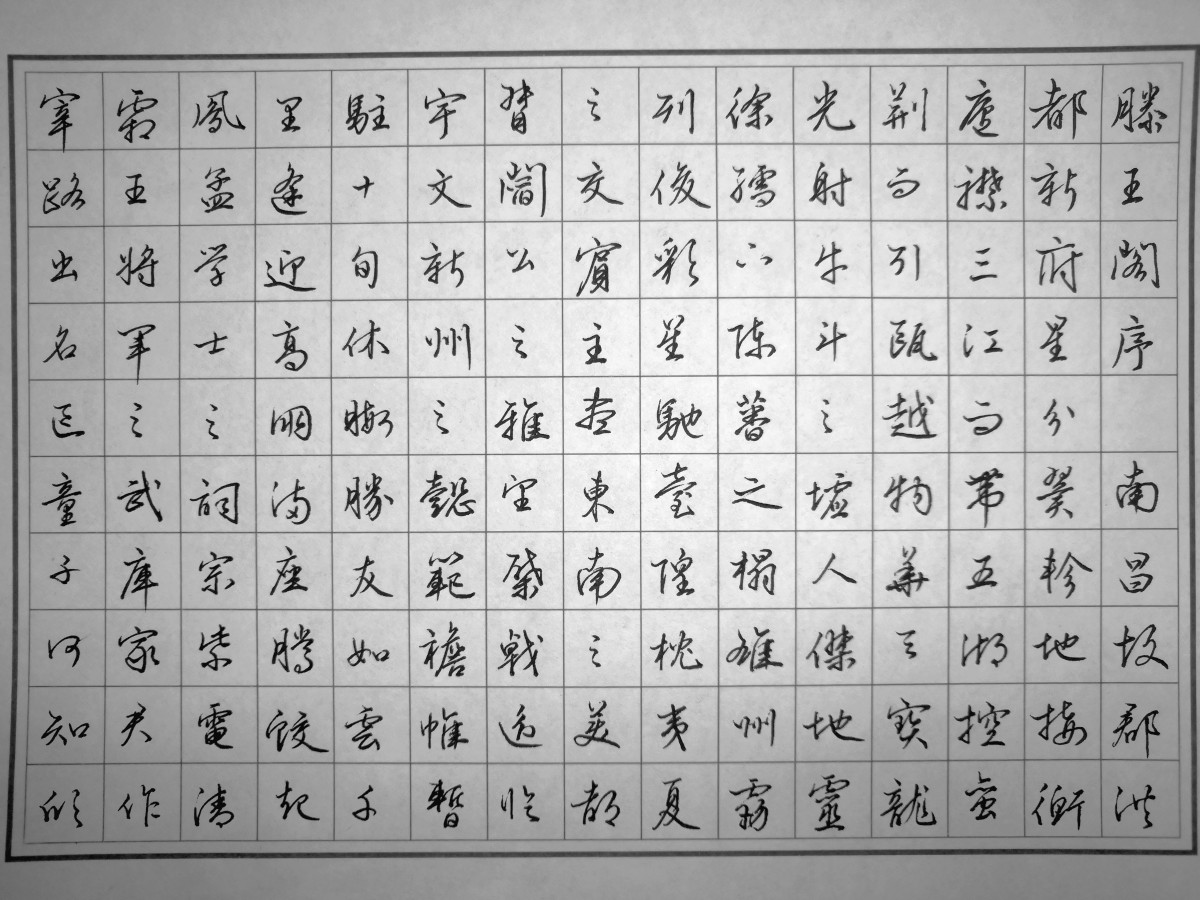 滕王閣序 南昌故郡洪
都新府星分翼軫地接衡
廬襟三江而帶五湖控蠻
荊而引甌越物華天寶龍
光射牛斗之墟人傑地靈
徐孺下陳蕃之榻雄州霧
列俊彩星馳臺隍枕夷夏
之交賓主盡東南之美都
督閻公之雅望棨戟遙臨
宇文新州之懿範襜帷暫
駐十旬休暇勝友如雲千
里逢迎高朋滿座騰蛟起
鳳孟学士之詞宗紫電清
霜王將軍之武庫家君作
宰路出名區童子何知躬